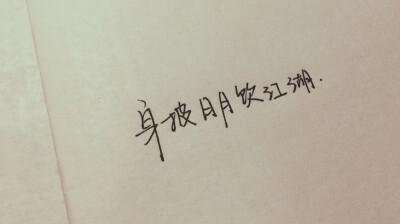 身披日月饮江湖.